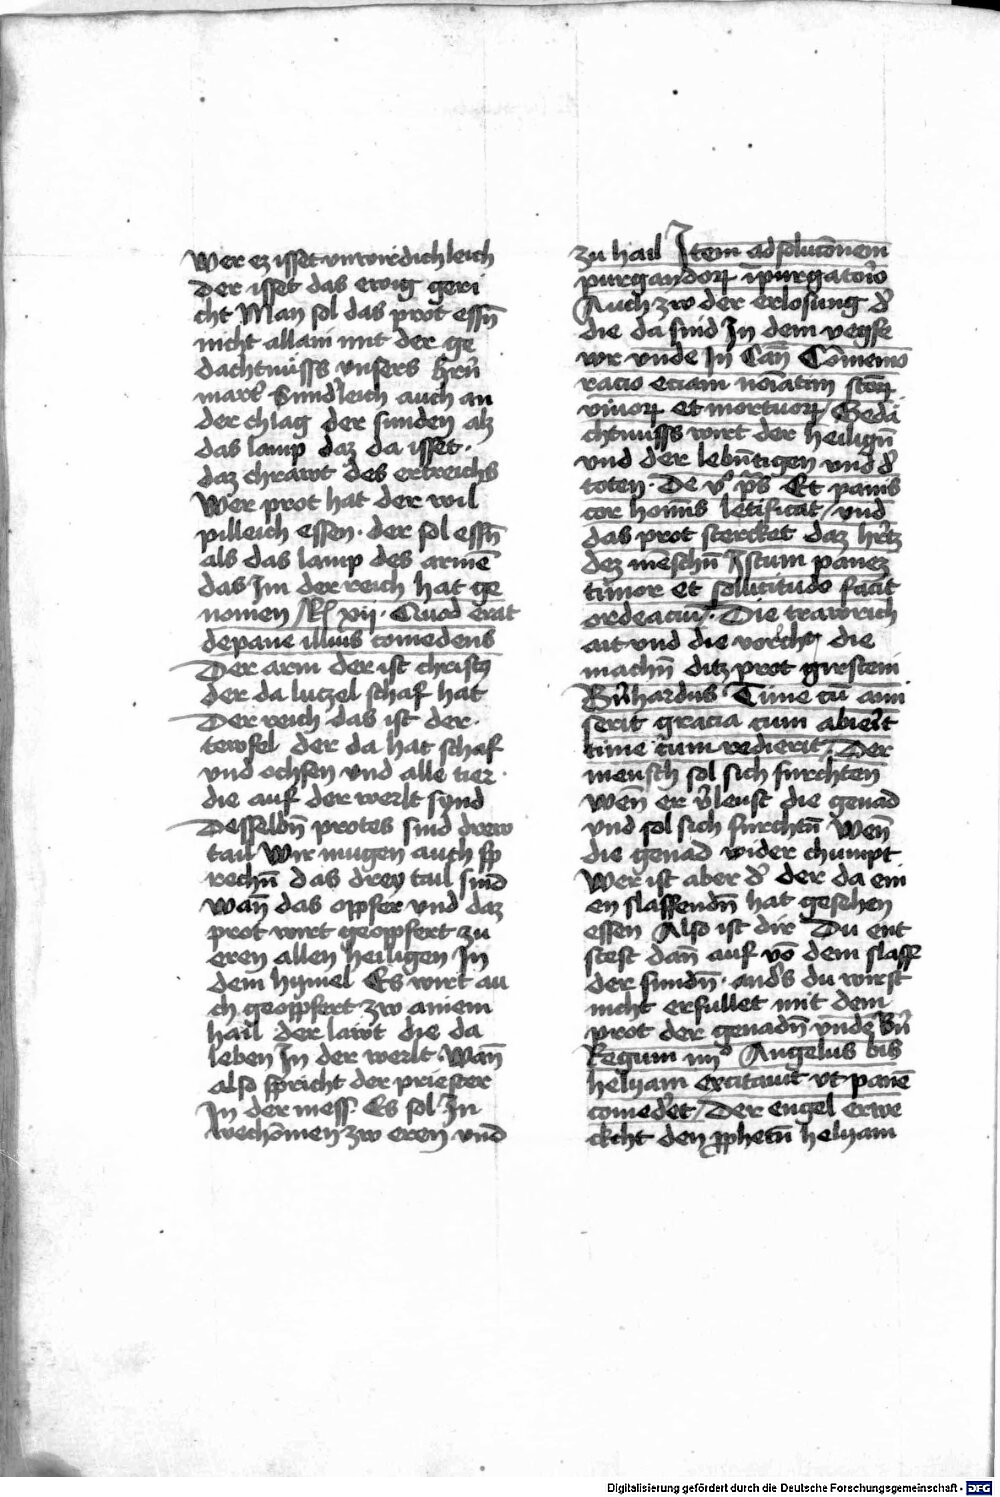 Wer ez isset unwirdichleich
Der isset das ewig geri
cht Man sol das prot essn̄
nicht allain mit der ge
dachtnüss unsers hrn̄
mart̾ Sunderleich auch an
der chlag der sunden alz
das lamp daz da isset·
daz chrawt des ertreichs
Wer prot hat der wil
pilleich essen· der sol essn̄
als das lamp des armē
das Im der reich hat ge
nomen / xij· Quod erat
de pane illius comedens
Der arm der ist christꝯ
der da luczel schaf hat
Der reich das ist der·
tewfel der da hat schaf
vnd ochsen vnd alle tier·
die auf der werlt synd
Desselbn̄ protes sind drew
tail Wir mugen auch sp
rechn̄ das drey tail sind
wan̄ das opfer vnd daz
prot wirt geopfert zu
eren allen heiligen In
dem hymel Es wirt au
ch geopfert zw ainem
hail der lawt die da
leben In der werlt· Wan̄
also spricht der priester
In der mess· Es sol In
bechōmen zw eren vnd
zu hail Item ad solucōnem
purgandoꝝ ī purgatorio
Auch zw der erlosung d̾
die da sind In dem vegfe
wr vnde In Can̄ Cōmemo
racio eciam noīatim sctōꝝ
viuoꝝ et mortuoꝝ / Gedä
chtnuss wirt der heilign̄
vnd der lebn̄tigen vnd d̾
toten· De v̾ ps̄ Et panis
cor homīs letificat / vnd
das prot stercket daz hr̾tz
dez mēschn̄ Istum panez
timor et sollicitudo facit
ordeaciū /· Die trawrich
ait vnd die vorcht die
machn̄ ditz prot girstein
Br̄hardus· Time cū ami
serit gracia cum abier̾t
time cum redierit / Der
mensch sol sich furchten
wen̄ er v̾leust die genad
vnd sol sich furchtn̄ Wen̄
die genad wider chumpt
Wer ist aber d̾ der da ein
en slaffendn̄ hat gesehen
essen Also ist dir Du ent
stest dan̄ auf vō dem slaff
der sundn̄· and̾s du wirst
nicht erfullet mit dem
prot der genadn̄ vnde
Regum iiij° Angelus bis
helyam excitauit vt panē
comed̾et / Der engel erwe
ckcht den ꝓphetn̄ helyam
Digitalisierung gefördert durch die Deutsche Forschungsgemeinschaft - DFG